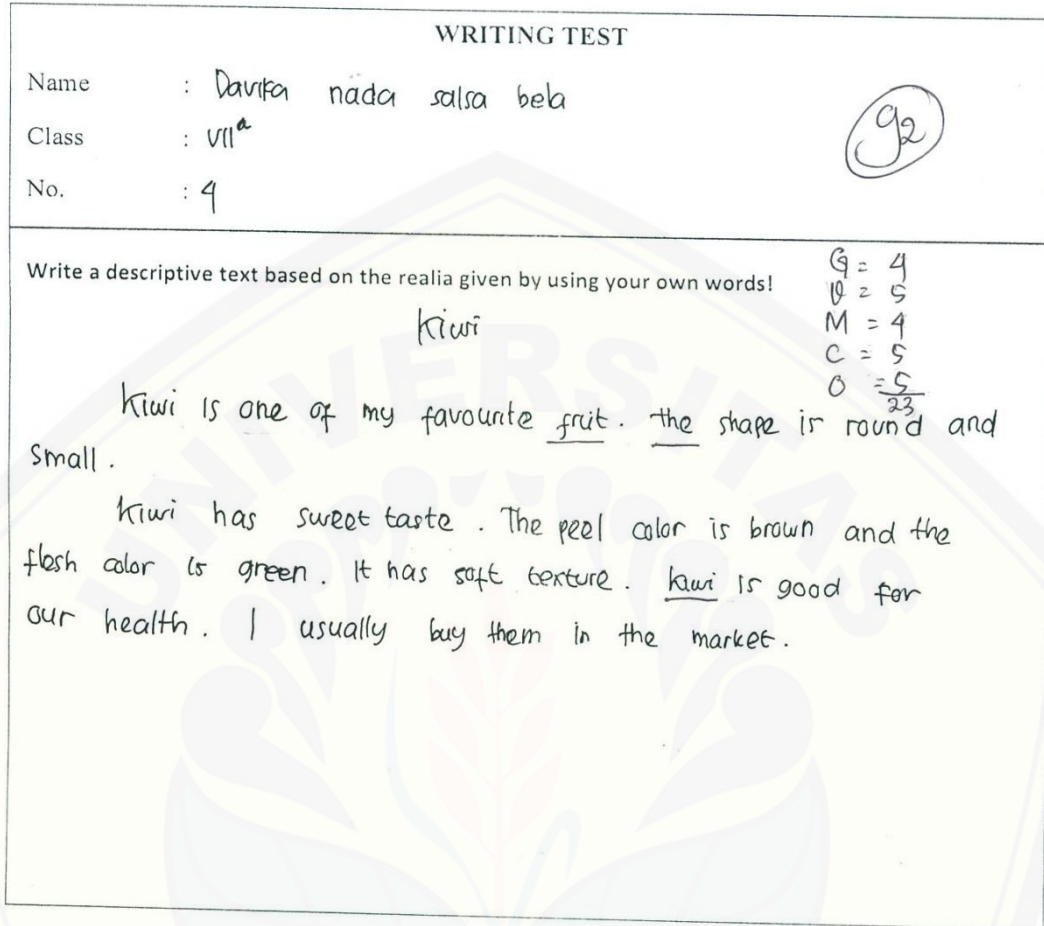 WRITING TEST
Name : Davika nada salsa bela
Class : VII a
No. : 4
92
Write a descriptive text based on the realia given by using your own words!
G = 4
V = 5
M = 4
C = 5
O = 5
23
kiwi
Kiwi is one of my favourite fruit. the shape is round and
small.
Kiwi has sweet taste. The peel color is brown and the
flesh color is green. It has soft texture. kiwi is good for
our health. I usually buy them in the market.
UNIVERSITAS